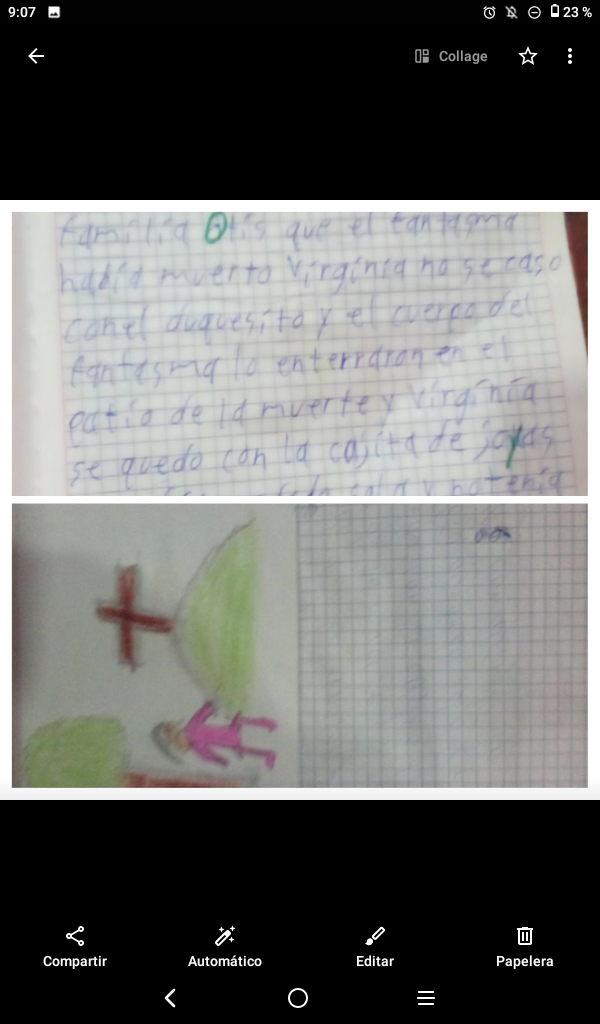 9:07
23 %
Collage
familia Otis que el fantasma
había muerto Virginia no se caso
con el duquesito y el cuerpo del
fantasma lo enterraron en el
patio de la muerte y Virginia
se quedo con la cajita de joyas
sola y no tenia
Compartir
Automático
Editar
Papelera